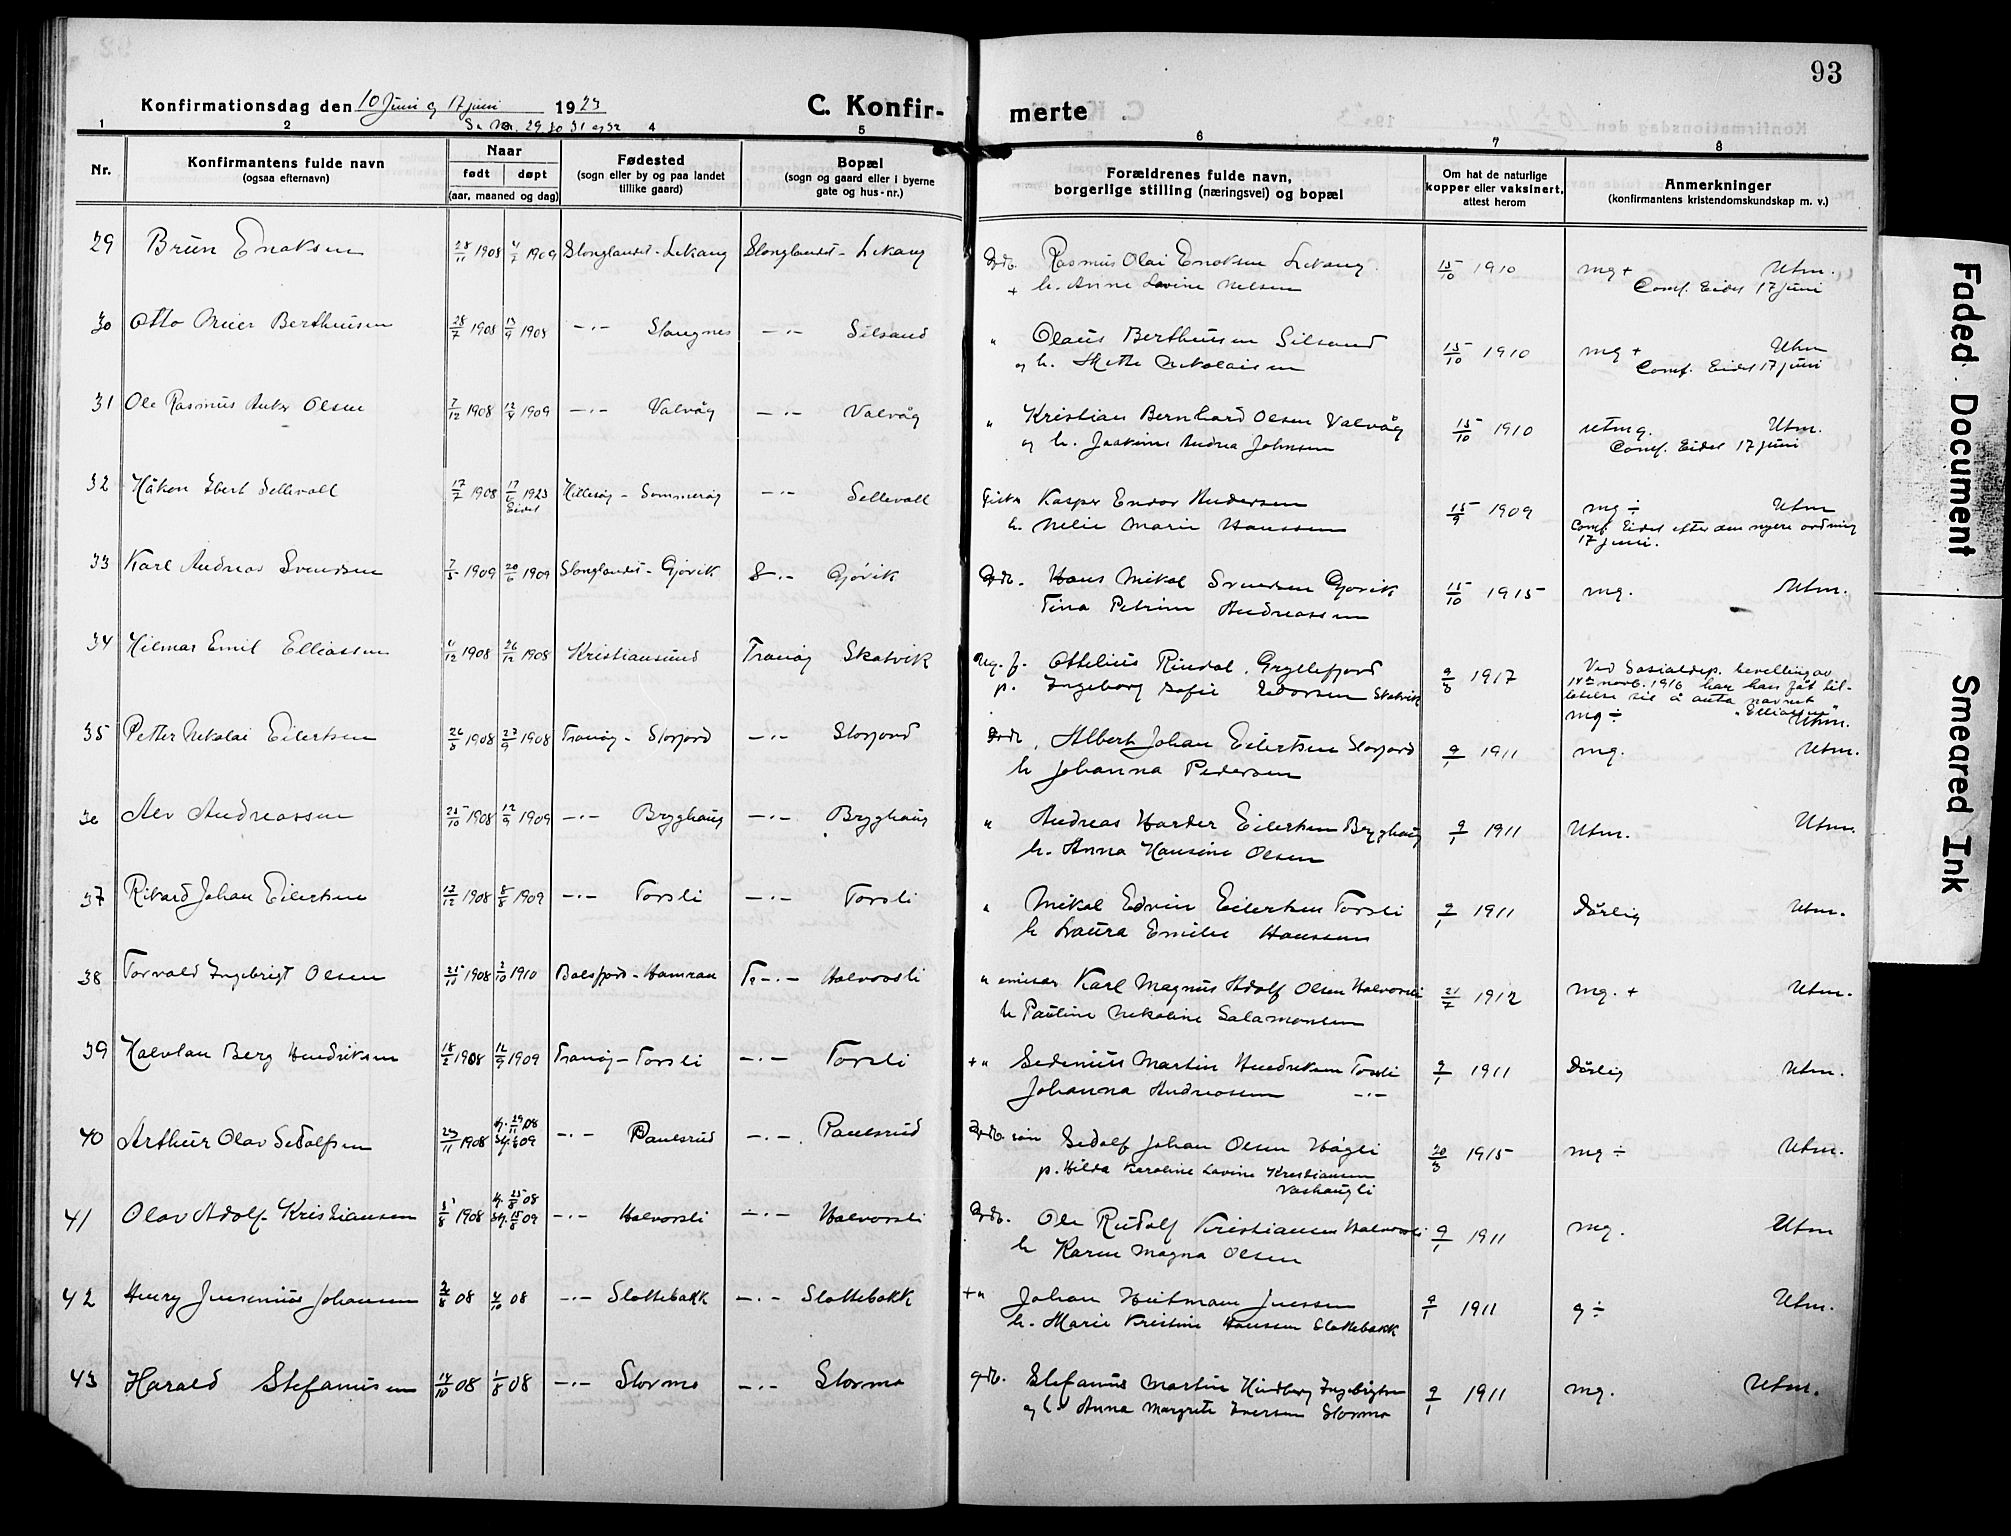 93
Konfirmationsdag den 10 Juni og 17 juni 1923
C. Konfir- merte
Se Nr. 29 30 31 og 32
1 2 3 4 5 6 7 8
Nr.
Konfirmantens fulde navn
(ogsaa efternavn)
Naar
født døpt
(aar, maaned og dag)
Fødested
(sogn eller by og paa landet
tillike gaard)
Bopæl
(sogn og gaard eller i byerne
gate og hus-nr.)
Forældrenes fulde navn,
borgerlige stilling (næringsvei) og bopæl
Om hat de naturlige
kopper eller vaksinert,
attest herom
Anmerkninger
(konfirmantens kristendomskundskap m. v.)
29 Brün Enoksen 28/11 1908 4/7 1909 Stonglandet - Lekang Stonglandet - Lekang Gdb. Rasmus Olai Enoksen Lekang 15/10 1910 mg + Utm.
+ h. Anne Lovine Nelsen Conf. Eidet 17 juni
30 Otto Meier Bertheusen 28/7 1908 13/9 1908 -"- Stangnes -"- Silsand " Olaus Bertheusen Silsand 15/10 1910 mg + Utm
og h. Mette Nikolaisen Conf. Eidet 17 juni
31 Ole Rasmus Anker Olsen 7/12 1908 12/4 1909 -"- Valvåg -"- Valvåg " Kristian Bernhard Olsen Valvåg 15/10 1910 utmg. Utm.
og h. Joakime Andrea Johnsen Conf. Eidet 17 juni
32 Håkon Ebert Sellevoll 17/7 1908 17/6 1923 Hillesøy - Sommerøy -"- Sellevoll Kasper Endor Andersen 15/9 1909 mg ÷ Utm
Eidet h. Nelie Marie Hanssen Conf. Eidet efter den nyere ordning
17 juni.
33 Karl Andreas Svendsen 7/5 1909 20/6 1909 Stonglandet - Gjøvik S -"- Gjøvik Gdb. Hans Mikal Svendsen Gjøvik 15/10 1915 mg. Utm.
Tina Petrine Andreassen
34 Hilmar Emil Elliassen 4/12 1908 26/12 1908 Kristiansund Tranøy Skatvik Ug. f. Ottelius Rindal, Gryllefjord 9/3 1917 Ved Sosialdep. bevelling av
p. Ingeborg Sofie Edorsen Skatvik 14de novb. 1916 har han fåt til-
latelse til å anta navnet
"Elliassen"
mg ÷ Utm.
35 Petter Nikolai Eilertsen 26/5 1908 27/9 1908 Tranøy - Storjord -"- Storjord Gdb. Albert Johan Eilertsen Storjord 9/1 1911 mg. Utm.
h Johanna Pedersen
36 Alv Andreassen 25/10 1908 12/9 1909 -"- Brygghaug -"- Brygghaug " Andreas Harder Eilertsen Brygghaug 9/1 1911 Utm. Utm.
h. Anna Hansine Olsen
37 Rikard Johan Eilertsen 12/12 1908 8/8 1909 -"- Torsli -"- Torsli " Mikal Edvin Eilertsen Torsli 9/1 1911 Dårlig Utm.
h Laura Emilie Hanssen
38 Torvald Ingebrigt Olsen 1908 2/10 1910 Balsfjord - Tr -"- Halvorsli " emissær Karl Magnus Adolf Olsen Halvorsli 21/7 1912 mg. + Utm.
h Pauline Nikoline Salamonsen
39 Halvdan Berg Hendriksen 18/2 1908 12/9 1909 Tranøy - Torsli -"- Torsli + " Sedenius Martin Hendriksen Torsli 9/1 1911 Dårlig Utm.
Johanna Andreasen -"-
40 Arthur Olav Sedolfsen 23/11 1908 hj. 29/11 08 -"- Paulsrud -"- Paulsrud Gdb. søn Sedolf Johan Olsen Hågli 20/3 1915 mg ÷ Utm.
p. Hilda Karoline Lovine Kristiansen
Vashaugli
41 Olav Adolf Kristiansen 5/8 1908 hj. 25/8 08 -"- Halvorsli -"- Halvorsli Gdb. Ole Rudolf Kristiansen Halvorsli 9/1 1911 mg. Utm
15/8 09 h Karen Magna Olsen
42 Henry Jensenius Johansen 2/8 08 4/10 08 -"- Slottebakk -"- Slottebakk + " Johan Heitmann Jenssen 9/1 1911 g ÷ Utm.
h. Marie Kristine Hanssen Slottebakk
43 Harald Stefanusen 14/10 08 1/8 08 -"- Stormo -"- Stormo gdb. Stefanus Martin Hindberg Ingebrigtsen 9/1 1911 mg. Utm.
og h. Anna Margrete Iversen Stormo
Faded Document
Smeared Ink